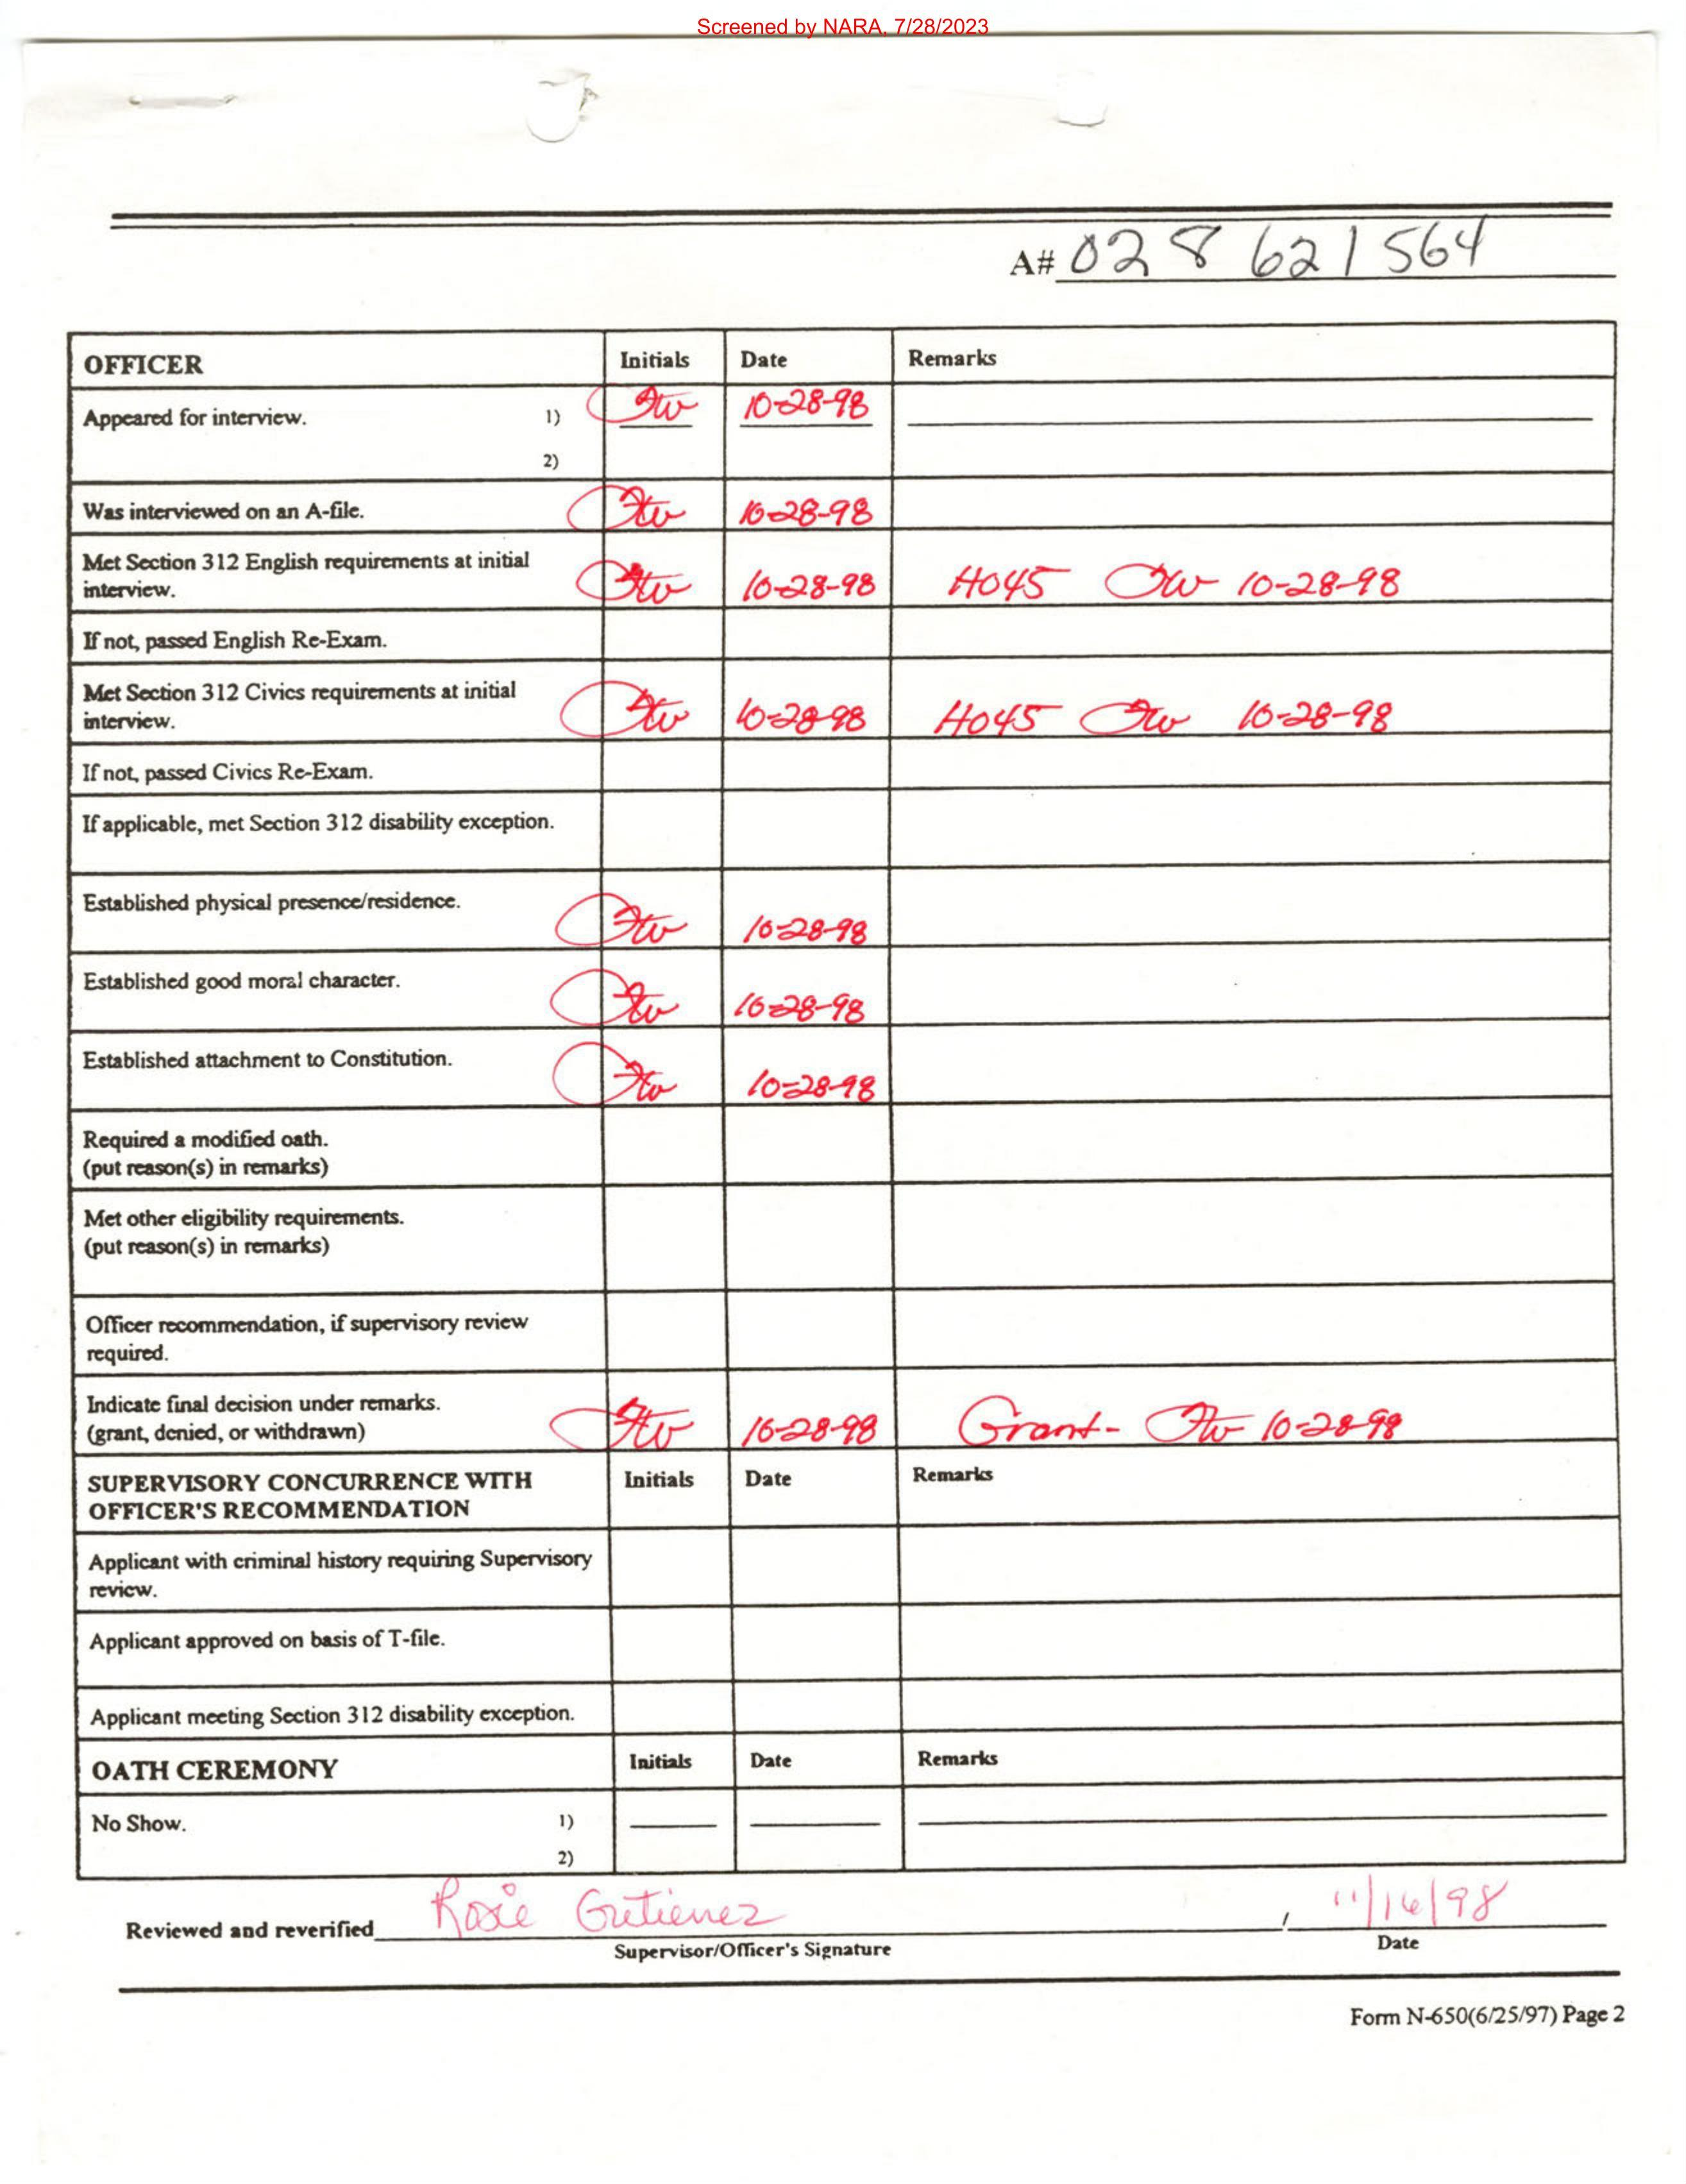 Screened by NARA, 7/28/2023
A# 028 621 564
OFFICER Initials Date Remarks
Appeared for interview. 1) 10-28-98
2)
Was interviewed on an A-file. 10-28-98
Met Section 312 English requirements at initial
interview. 10-28-98 H045 10-28-98
If not, passed English Re-Exam.
Met Section 312 Civics requirements at initial
interview. 10-28-98 H045 10-28-98
If not, passed Civics Re-Exam.
If applicable, met Section 312 disability exception.
Established physical presence/residence. 10-28-98
Established good moral character. 10-28-98
Established attachment to Constitution. 10-28-98
Required a modified oath.
(put reason(s) in remarks)
Met other eligibility requirements.
(put reason(s) in remarks)
Officer recommendation, if supervisory review
required.
Indicate final decision under remarks.
(grant, denied, or withdrawn) 10-28-98 Grant- 10-28-98
SUPERVISORY CONCURRENCE WITH Initials Date Remarks
OFFICER'S RECOMMENDATION
Applicant with criminal history requiring Supervisory
review.
Applicant approved on basis of T-file.
Applicant meeting Section 312 disability exception.
OATH CEREMONY Initials Date Remarks
No Show. 1)
2)
Reviewed and reverified Rosie Gutierrez , 11/16/98
Supervisor/Officer's Signature Date
Form N-650(6/25/97) Page 2